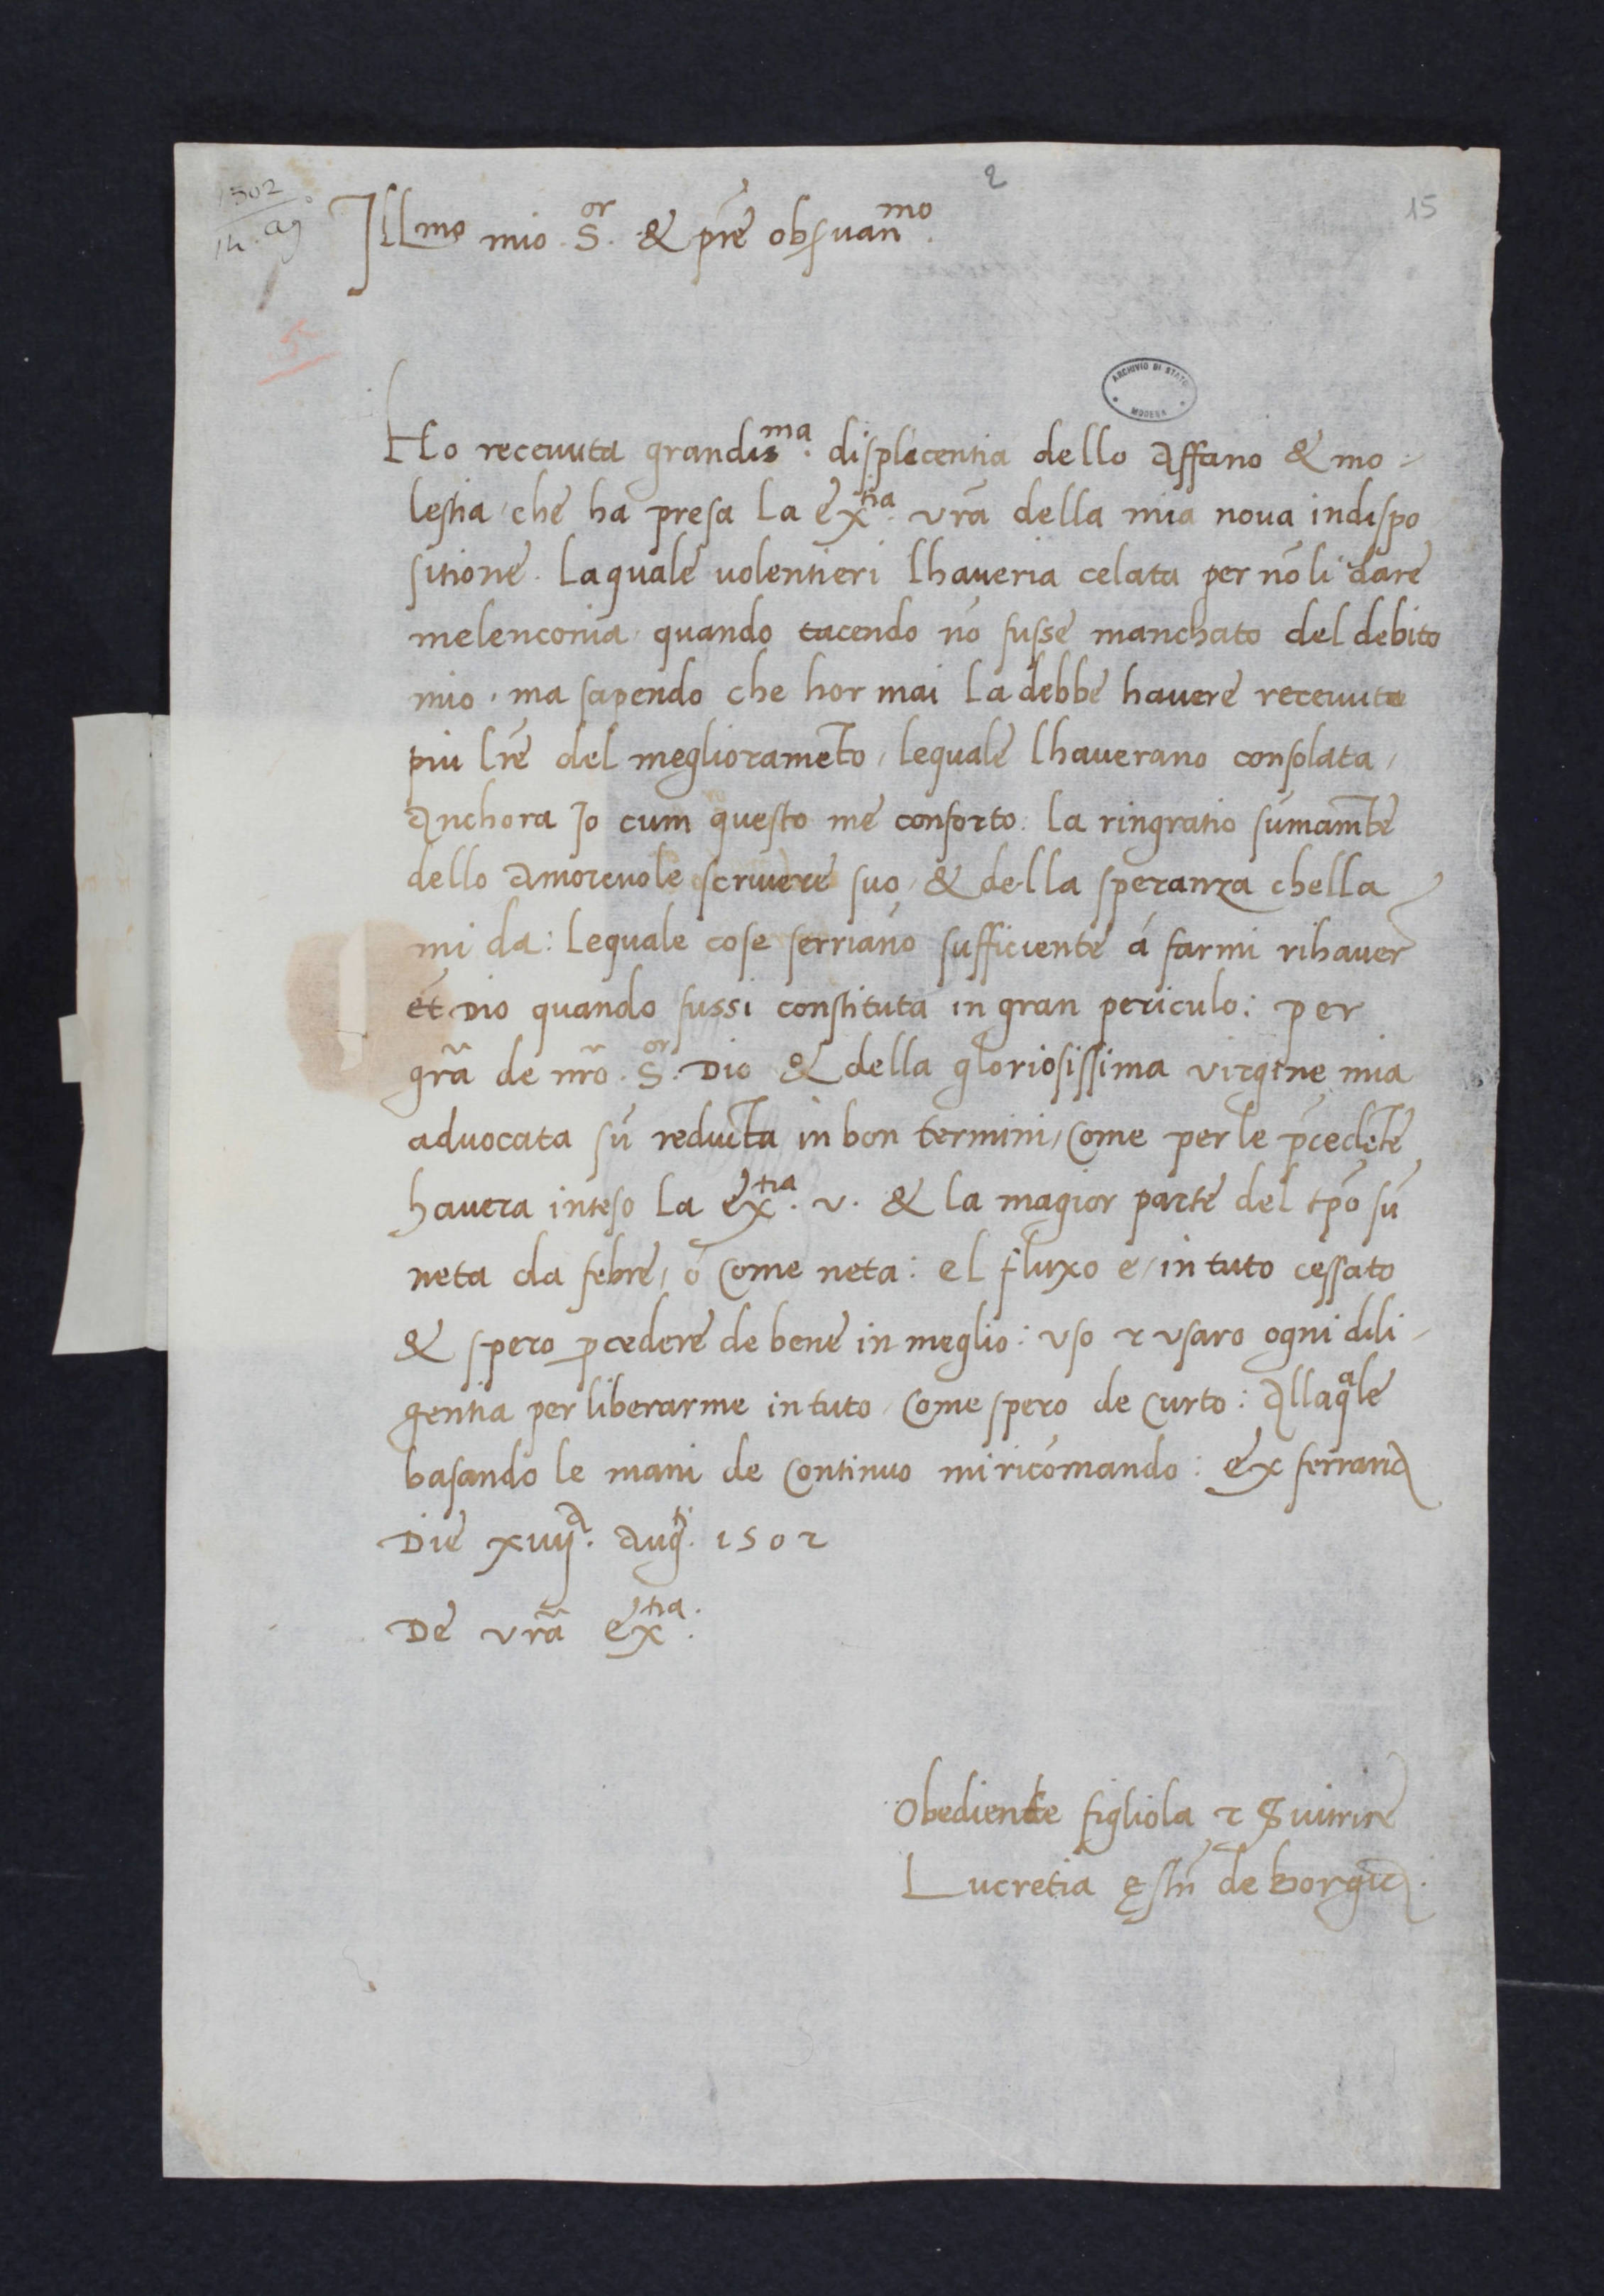 2
15
1502
14. Ag°
5
Ill^mo mio S^or. & prē obsuan^mo.
ARCHIVIO DI STATO
MODENA
Ho receuuta grandis^ma. displicentia dello Affano & mo-
lestia che ha presa la ex^tia. vrā della mia noua indispo
sitione. laquale uolentieri lhaueria celata per nō li dare
melenconia quando tacendo nō fusse manchato del debito
mio. ma sapendo che hor mai la debbe hauere receuute
piu lrē del meglioramēto, lequale lhauerano consolata,
Anchora Io cum questo me conforto. la ringratio sūmamēte
dello Amoreuole scriuere suo, & della speranza chella
mi da: lequale cose serriano sufficiente á farmi rihauer
et Dio quando fussi constituta in gran periculo: per
grā de nrō S^or. Dio & della gloriosissima virgine mia
aduocata sū reducta in bon termini, come per le p̄cedēte
hauera inteso la ex^tia. v. & la magior parte del tp̄o sū
neta da febre, ó come neta: el fluxo e, in tuto cessato
& spero ꝓcedere de bene in meglio: vso ⁊ vsaro ogni dili-
gentia per liberarme in tuto, come spero de curto: Allaq^ale
basando le mani de continuo mi ricōmando: ex ferraria
Die xiiij^a. Aug^ti. 1502
De vrā ex^tia.
Obediente figliola ⁊ Suitrice
Lucretia ęstn̄ de Borgia.